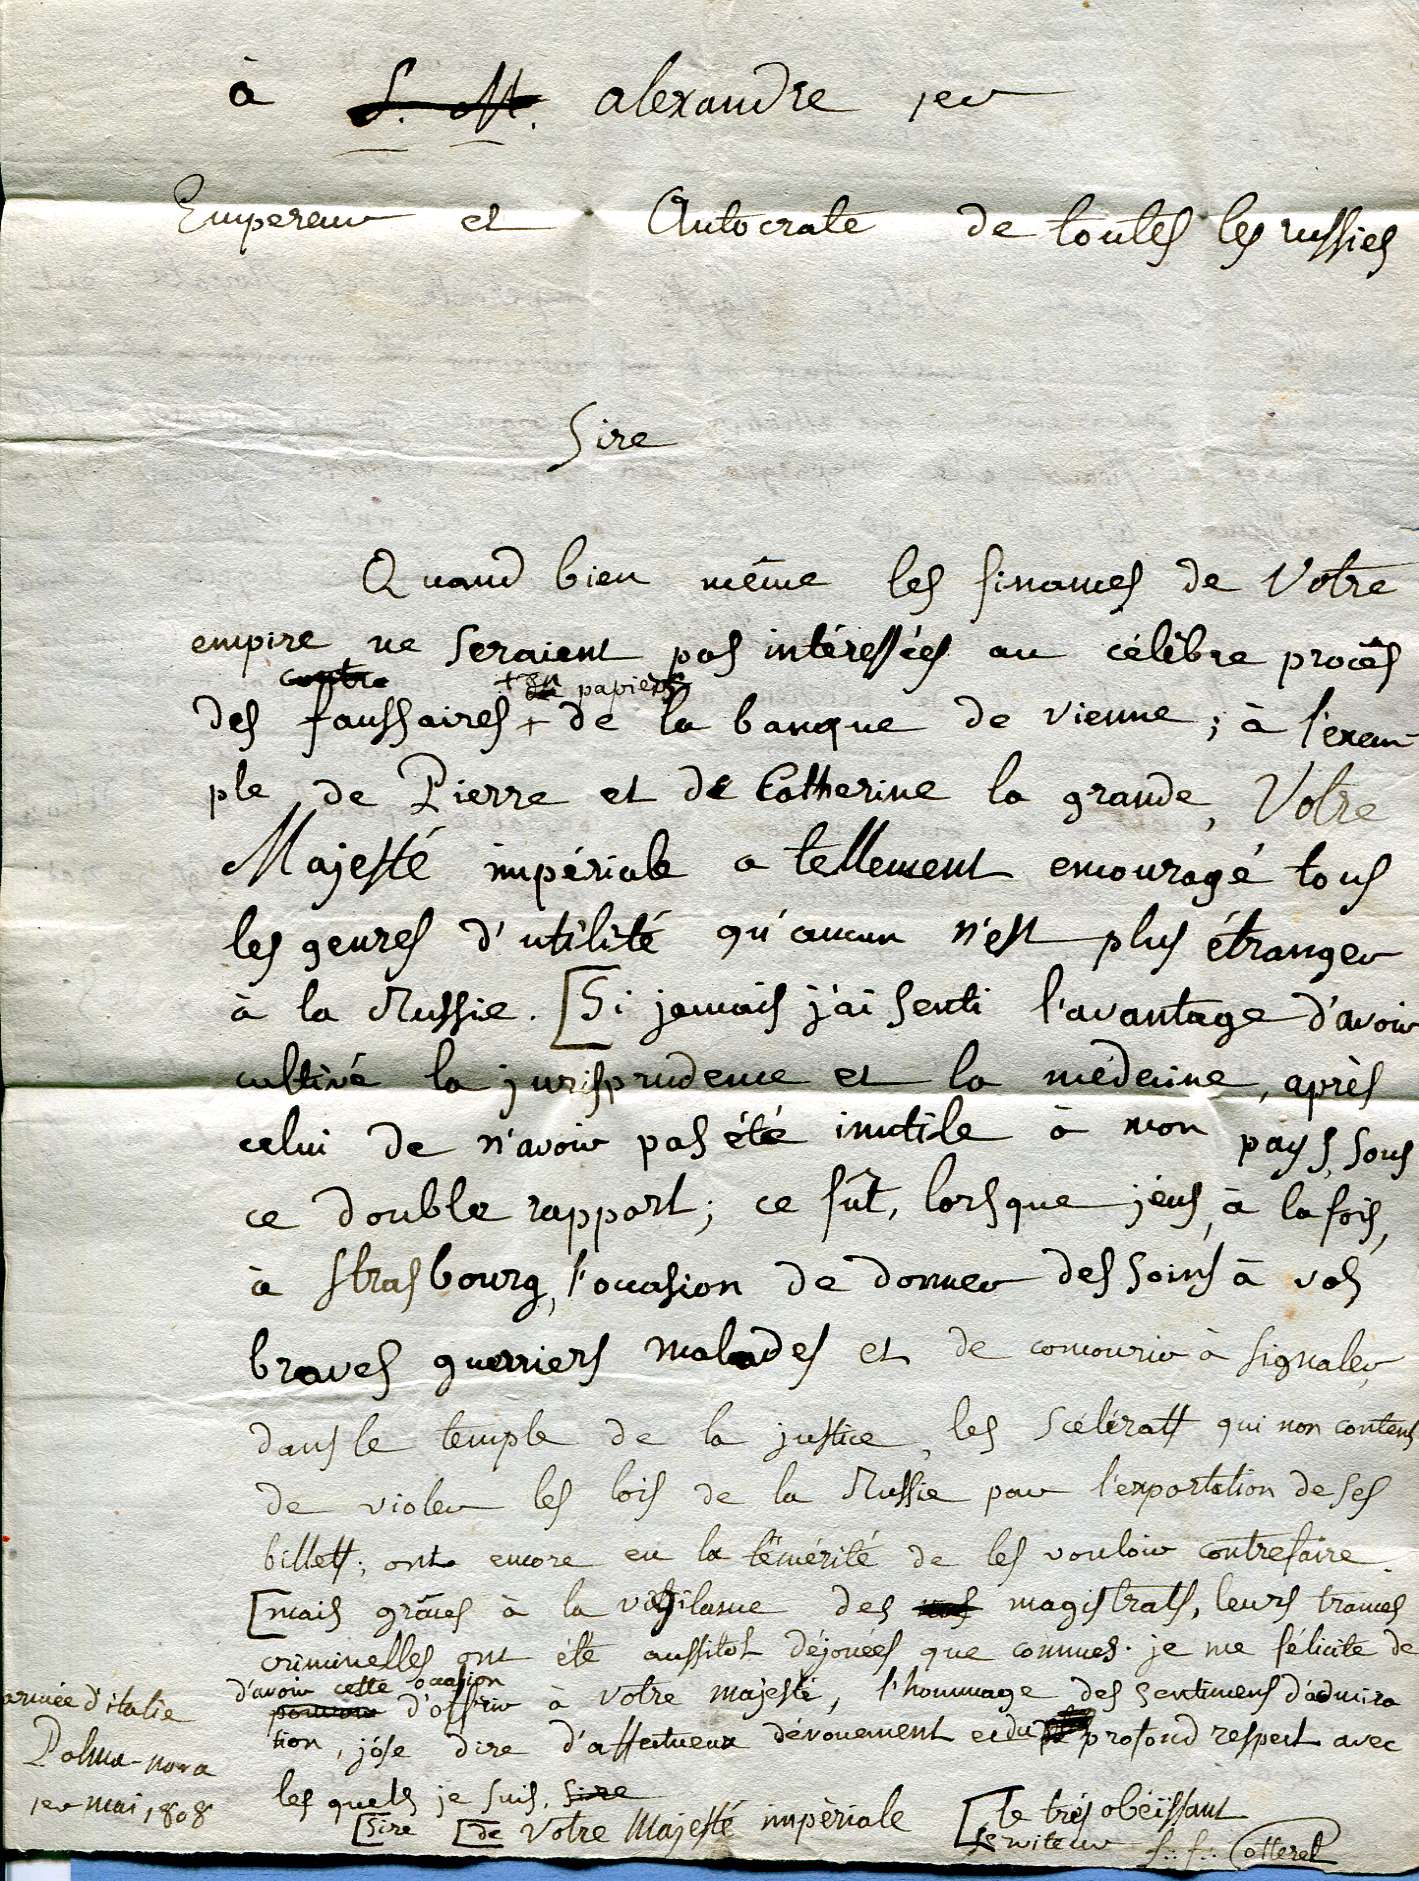 à S. M. alexandre 1er
Empereur et Autocrate de toutes les russies
Sire
Quand bien même les finances de Votre
empire ne seraient pas intéressées au célèbre procès
contre + du papiers
des faussaires + de la banque de vienne ; à l'exem-
ple de Pierre et de Catherine la grande, Votre
Majesté impériale a tellement encouragé tous
les genres d'utilité qu'aucun n'est plus étranger
à la Russie. [Si jamais j'ai senti l'avantage d'avoir
cultivé la jurisprudence et la médecine, après
celui de n'avoir pas été inutile à mon pays, sous
ce double rapport ; ce fût, lorsque j'eus, à la fois,
à strasbourg, l'occasion de donner des soins à vos
braves guerriers malades et de concourir à signaler,
dans le temple de la justice, les scélérats qui non contens
de violer les lois de la Russie par l'exportation de ses
billets ; ont encore eu la témérité de les vouloir contrefaire.
[mais grâces à la vigilance des magistrats, leurs trames
criminelles ont été aussitot déjouées que connues. je me félicite de
d'avoir cette occasion
pouvoir d'offrir à Votre majesté, l'hommage des sentimens d'admira
tion, j'ose dire d'affectueux dévouement et du profond respect avec
les quels je suis, Sire
[Sire [de Votre Majesté impèriale [le très obéissant
serviteur f.: f.: Cotterel
armée d'italie
Palma-nova
1er mai 1808